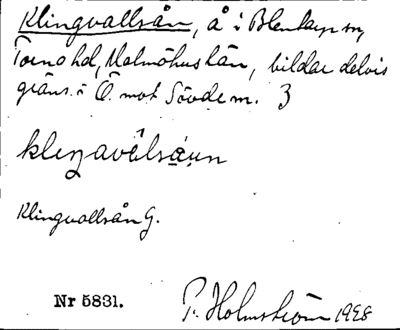 Klingvallsån, å i Blentarps sn,
Torna hd, Malmöhus län, bildar delvis
gräns i Ö. mot Sövde m. 3
Klingvallsån G.
Nr 5831.
P. Holmström 1928